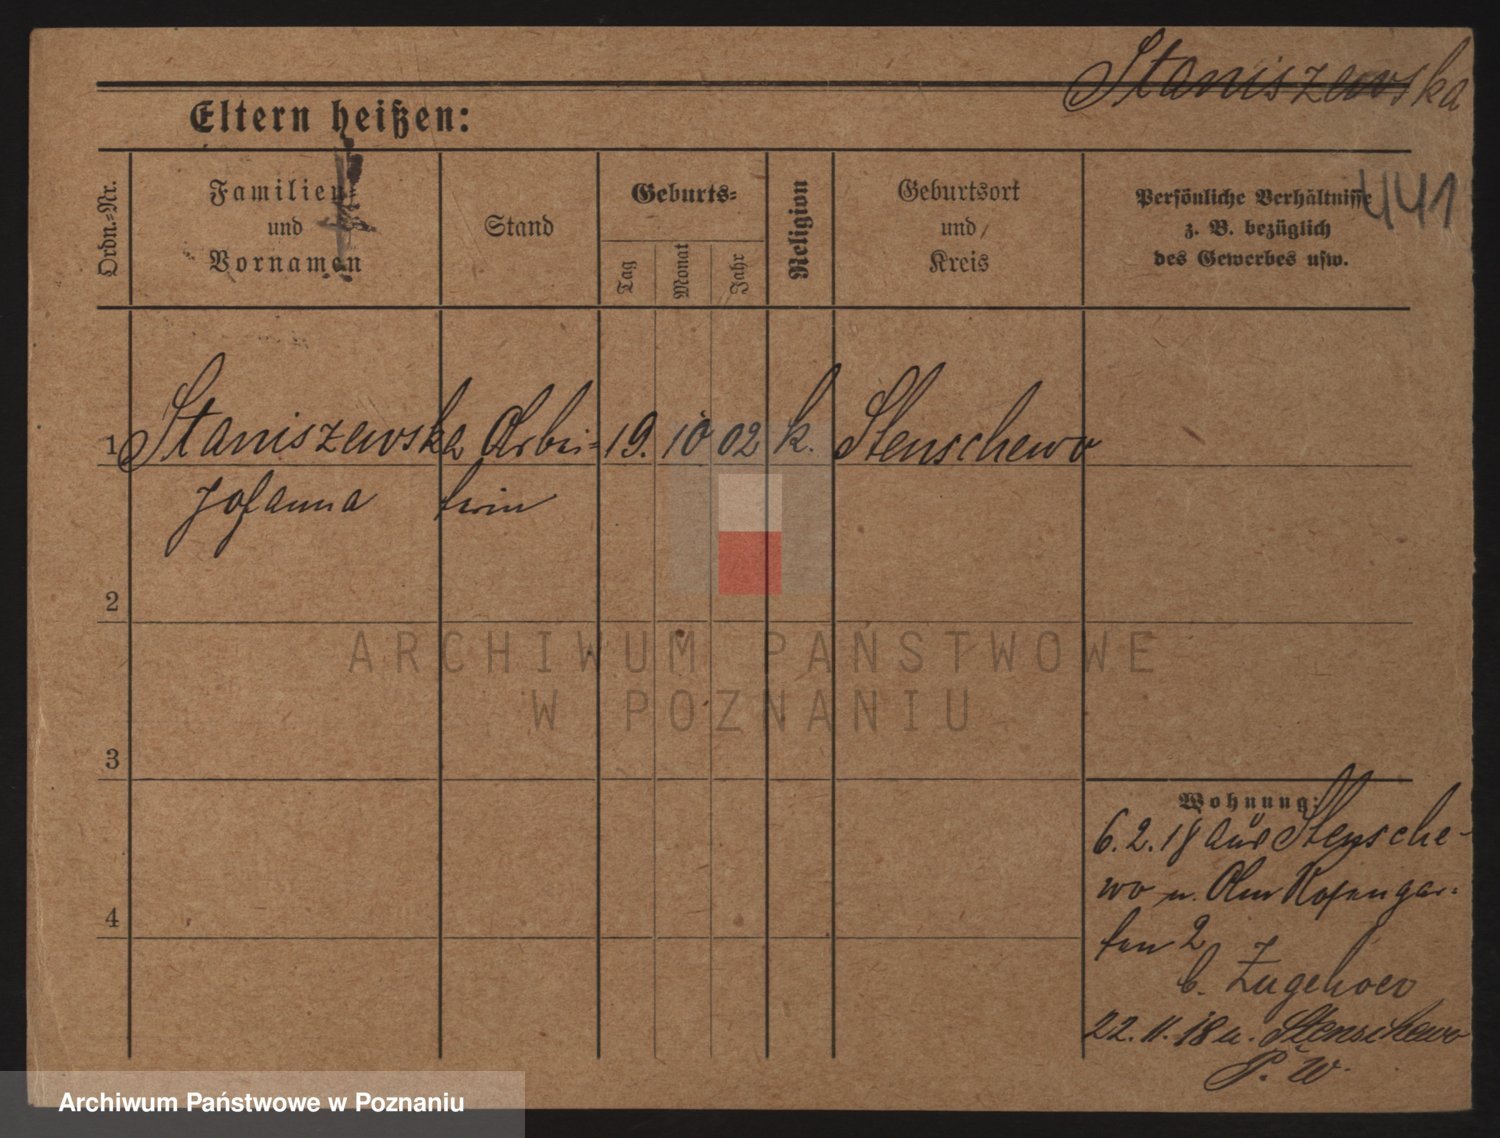 Staniszewska
Eltern heißen:
441
Ordn.-Nr.
Familien-
und
Vornamen
Stand
Geburts-
Tag
Monat
Jahr
Religion
Geburtsort
und
Kreis
Persönliche Verhältnisse
z. B. bezüglich
des Gewerbes usw.
1 Staniszewska Arbei- 19. 10 02 k. Stenschewo
Johanna terin
2
3
4
Wohnung:
6.2.18 aus Stensche-
wo n. Am Rosengar-
ten 2
b. Zugehoer
22.11.18 n. Stenschewo
P. W.
ARCHIWUM PAŃSTWOWE
W POZNANIU
Archiwum Państwowe w Poznaniu